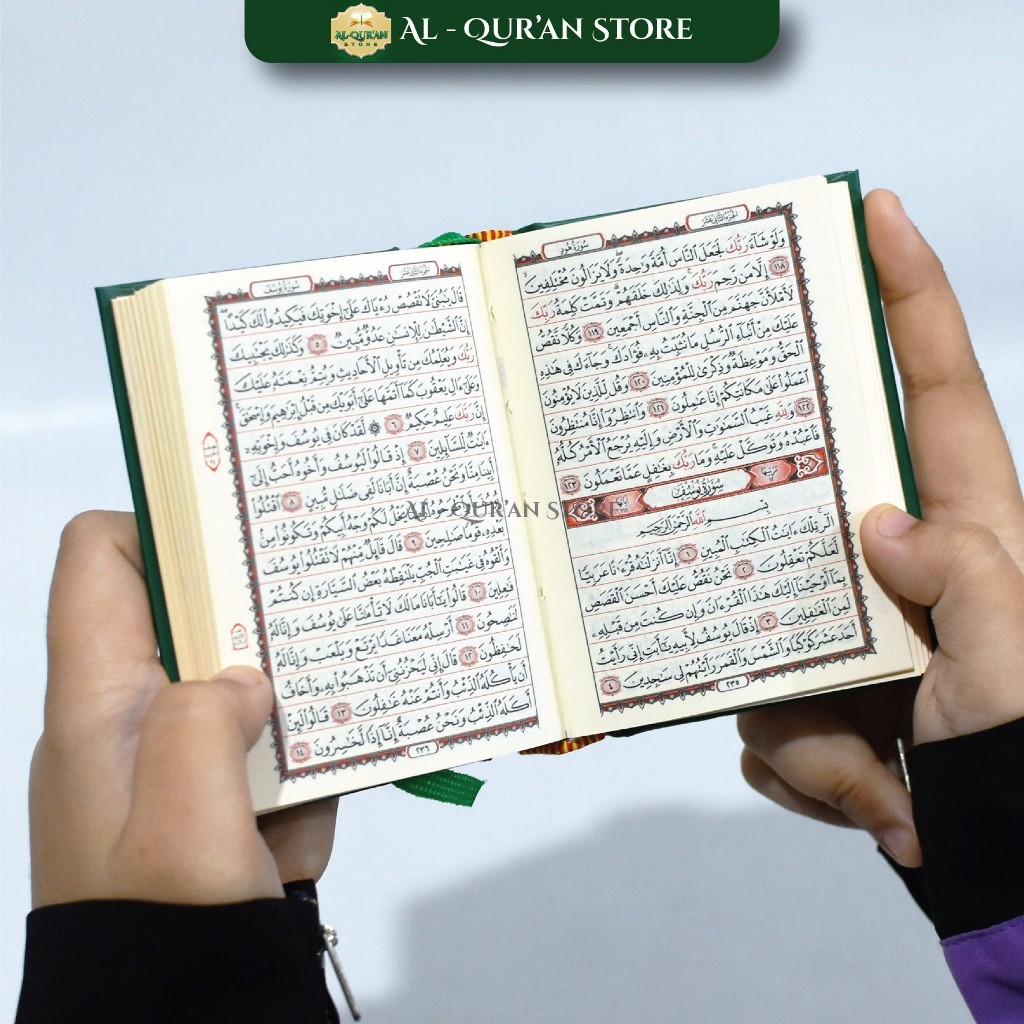 AL-QUR'AN
STORE
AL - QUR'AN STORE
الجزء الثاني عشر
سورة هود
وَلَوْ شَآءَ رَبُّكَ لَجَعَلَ النَّاسَ أُمَّةً وَٰحِدَةً وَلَا يَزَالُونَ مُخْتَلِفِينَ
١١٨ إِلَّا مَن رَّحِمَ رَبُّكَ وَلِذَٰلِكَ خَلَقَهُمْ وَتَمَّتْ كَلِمَةُ رَبِّكَ
لَأَمْلَأَنَّ جَهَنَّمَ مِنَ الْجِنَّةِ وَالنَّاسِ أَجْمَعِينَ ١١٩ وَكُلًّا نَّقُصُّ
عَلَيْكَ مِنْ أَنۢبَآءِ الرُّسُلِ مَا نُثَبِّتُ بِهِۦ فُؤَادَكَ وَجَآءَكَ فِى هَٰذِهِ
الْحَقُّ وَمَوْعِظَةٌ وَذِكْرَىٰ لِلْمُؤْمِنِينَ ١٢٠ وَقُل لِّلَّذِينَ لَا يُؤْمِنُونَ
اعْمَلُوا۟ عَلَىٰ مَكَانَتِكُمْ إِنَّا عَٰمِلُونَ ١٢١ وَانتَظِرُوٓا۟ إِنَّا مُنتَظِرُونَ
١٢٢ وَلِلَّهِ غَيْبُ السَّمَٰوَٰتِ وَالْأَرْضِ وَإِلَيْهِ يُرْجَعُ الْأَمْرُ كُلُّهُۥ
فَاعْبُدْهُ وَتَوَكَّلْ عَلَيْهِ وَمَا رَبُّكَ بِغَٰفِلٍ عَمَّا تَعْمَلُونَ ١٢٣
سُورَةُ يُوسُفَ
بِسْمِ اللَّهِ الرَّحْمَٰنِ الرَّحِيمِ
الٓر تِلْكَ ءَايَٰتُ الْكِتَٰبِ الْمُبِينِ ١ إِنَّآ أَنزَلْنَٰهُ قُرْءَٰنًا عَرَبِيًّا
لَّعَلَّكُمْ تَعْقِلُونَ ٢ نَحْنُ نَقُصُّ عَلَيْكَ أَحْسَنَ الْقَصَصِ
بِمَآ أَوْحَيْنَآ إِلَيْكَ هَٰذَا الْقُرْءَانَ وَإِن كُنتَ مِن قَبْلِهِۦ
لَمِنَ الْغَٰفِلِينَ ٣ إِذْ قَالَ يُوسُفُ لِأَبِيهِ يَٰٓأَبَتِ إِنِّى رَأَيْتُ
أَحَدَ عَشَرَ كَوْكَبًا وَالشَّمْسَ وَالْقَمَرَ رَأَيْتُهُمْ لِى سَٰجِدِينَ ٤
٢٣٥
الجزء الثاني عشر
سورة يوسف
قَالَ يَٰبُنَىَّ لَا تَقْصُصْ رُءْيَاكَ عَلَىٰٓ إِخْوَتِكَ فَيَكِيدُوا۟ لَكَ كَيْدًا
إِنَّ الشَّيْطَٰنَ لِلْإِنسَٰنِ عَدُوٌّ مُّبِينٌ ٥ وَكَذَٰلِكَ يَجْتَبِيكَ
رَبُّكَ وَيُعَلِّمُكَ مِن تَأْوِيلِ الْأَحَادِيثِ وَيُتِمُّ نِعْمَتَهُۥ عَلَيْكَ
وَعَلَىٰٓ ءَالِ يَعْقُوبَ كَمَآ أَتَمَّهَا عَلَىٰٓ أَبَوَيْكَ مِن قَبْلُ إِبْرَٰهِيمَ وَإِسْحَٰقَ
إِنَّ رَبَّكَ عَلِيمٌ حَكِيمٌ ٦ ۞ لَّقَدْ كَانَ فِى يُوسُفَ وَإِخْوَتِهِۦٓ
ءَايَٰتٌ لِّلسَّآئِلِينَ ٧ إِذْ قَالُوا۟ لَيُوسُفُ وَأَخُوهُ أَحَبُّ إِلَىٰٓ
أَبِينَا مِنَّا وَنَحْنُ عُصْبَةٌ إِنَّ أَبَانَا لَفِى ضَلَٰلٍ مُّبِينٍ ٨ اقْتُلُوا۟
يُوسُفَ أَوِ اطْرَحُوهُ أَرْضًا يَخْلُ لَكُمْ وَجْهُ أَبِيكُمْ وَتَكُونُوا۟ مِنۢ
بَعْدِهِۦ قَوْمًا صَٰلِحِينَ ٩ قَالَ قَآئِلٌ مِّنْهُمْ لَا تَقْتُلُوا۟ يُوسُفَ
وَأَلْقُوهُ فِى غَيَٰبَتِ الْجُبِّ يَلْتَقِطْهُ بَعْضُ السَّيَّارَةِ إِن كُنتُمْ
فَٰعِلِينَ ١٠ قَالُوا۟ يَٰٓأَبَانَا مَا لَكَ لَا تَأْمَ۫نَّا عَلَىٰ يُوسُفَ وَإِنَّا لَهُۥ
لَنَٰصِحُونَ ١١ أَرْسِلْهُ مَعَنَا غَدًا يَرْتَعْ وَيَلْعَبْ وَإِنَّا لَهُۥ
لَحَٰفِظُونَ ١٢ قَالَ إِنِّى لَيَحْزُنُنِىٓ أَن تَذْهَبُوا۟ بِهِۦ وَأَخَافُ
أَن يَأْكُلَهُ الذِّئْبُ وَأَنتُمْ عَنْهُ غَٰفِلُونَ ١٣ قَالُوا۟ لَئِنْ
أَكَلَهُ الذِّئْبُ وَنَحْنُ عُصْبَةٌ إِنَّآ إِذًا لَّخَٰسِرُونَ ١٤
٢٣٦
AL - QUR'AN STORE